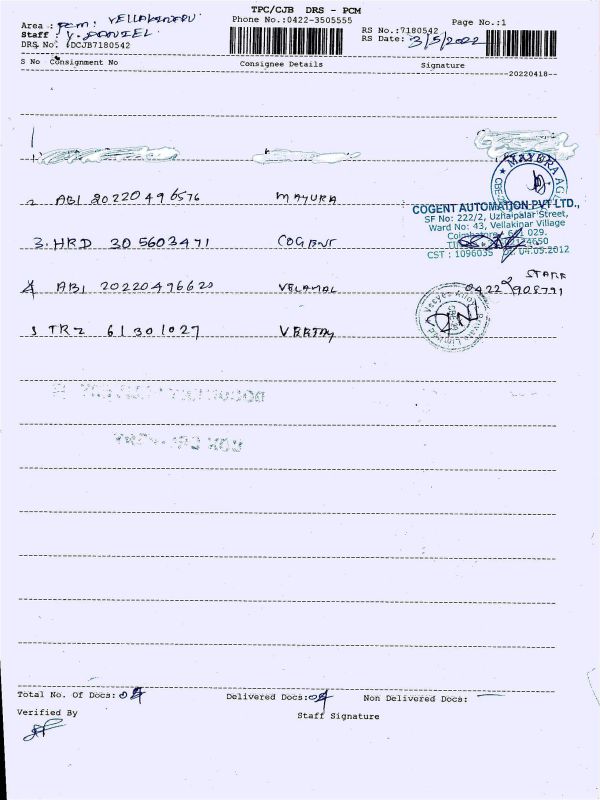 TPC/CJB DRS - PCM
Area : PCM: VELLAKINARU
Phone No.:0422-3505555
Page No.:1
Staff : Y. DANIEL.
RS No.:7180542
DRS No. :DCJB7180542
RS Date: 3/5/2022
S No Consignment No Consignee Details Signature
--20220418--
2. ABI 20220496576 MAYURA
MAYURA AG
COGENT AUTOMATION PVT LTD.,
SF No: 222/2, Uzhaipalar Street,
Ward No: 43, Vellakinar Village
Coimbatore - 641 029.
3. HRD 305603471 COGENT
CST : 1096035 Dt. 04.05.2012
STAFF
4 ABI 20220496620 VELAMAL
0422
Private Limited
5 TRZ 61301027
Total No. Of Docs: 04 Delivered Docs: 04 Non Delivered Docs: —
Verified By Staff Signature